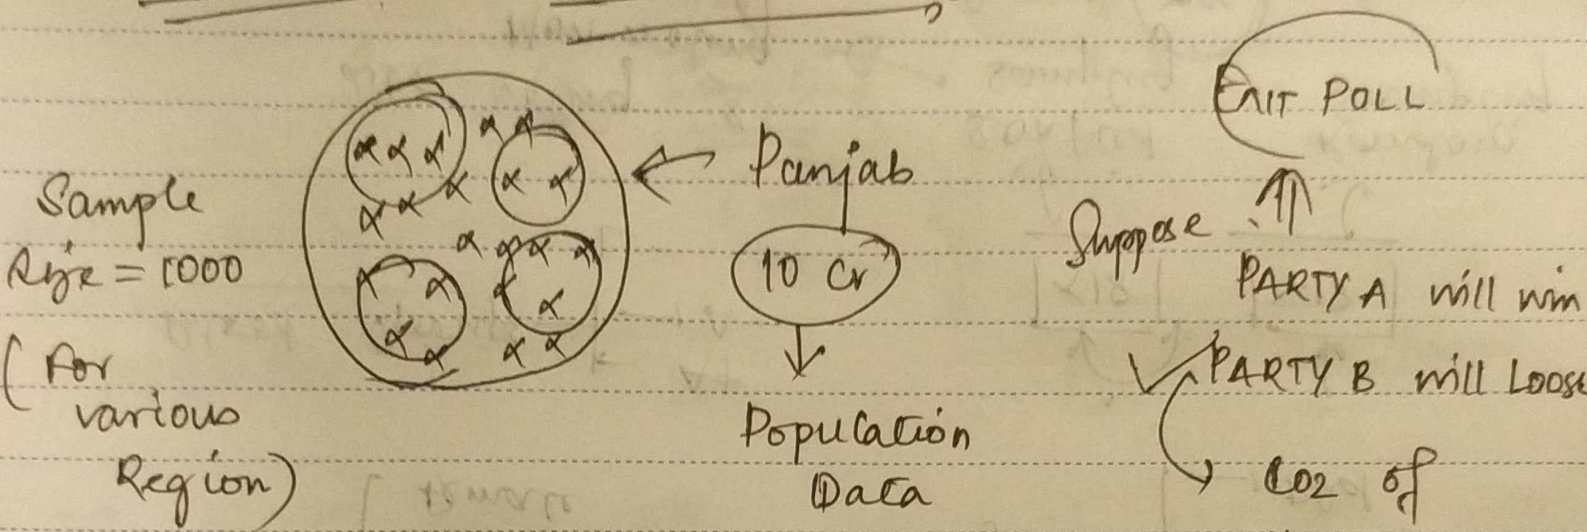 EXIT POLL
Sample
Size = 1000
(For
various
Region)
Punjab
10 Cr
Population
Data
Suppose
PARTY A will win
PARTY B will Loose
COZ of